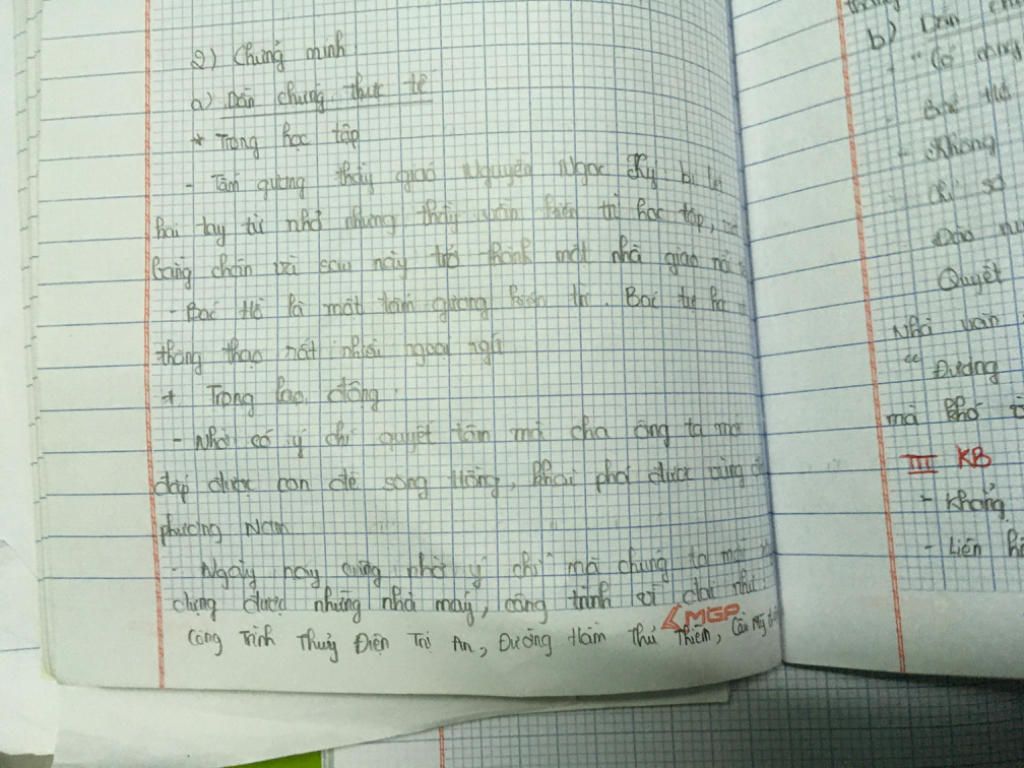 2) Chứng minh
a) Dẫn chứng thực tế
* Trong học tập
- Tấm gương thầy giáo Nguyễn Ngọc Ký bị liệt
hai tay từ nhỏ nhưng thầy vẫn kiên trì học tập,
bằng chân và sau này trở thành một nhà giáo
- Bác Hồ là một tấm gương kiên trì. Bác tự học
thông thạo rất nhiều ngoại ngữ
+ Trong lao động
- Nhờ có ý chí quyết tâm mà cha ông ta mới
đắp được con đê sông Hồng, khai phá được vùng
phương Nam
- Ngày nay cũng nhờ ý chí mà chúng ta mới
dựng được những nhà máy, công trình vĩ đại như
MGP
Công Trình Thuỷ Điện Trị An, Đường Hầm Thủ Thiêm, Cầu Mỹ
b) Dẫn
"Có công
Bác Hồ
- Không
Chỉ sợ
Đào núi
Quyết
Nhà văn
"Đường
mà khó
III KB
- Khẳng
- Liên hệ